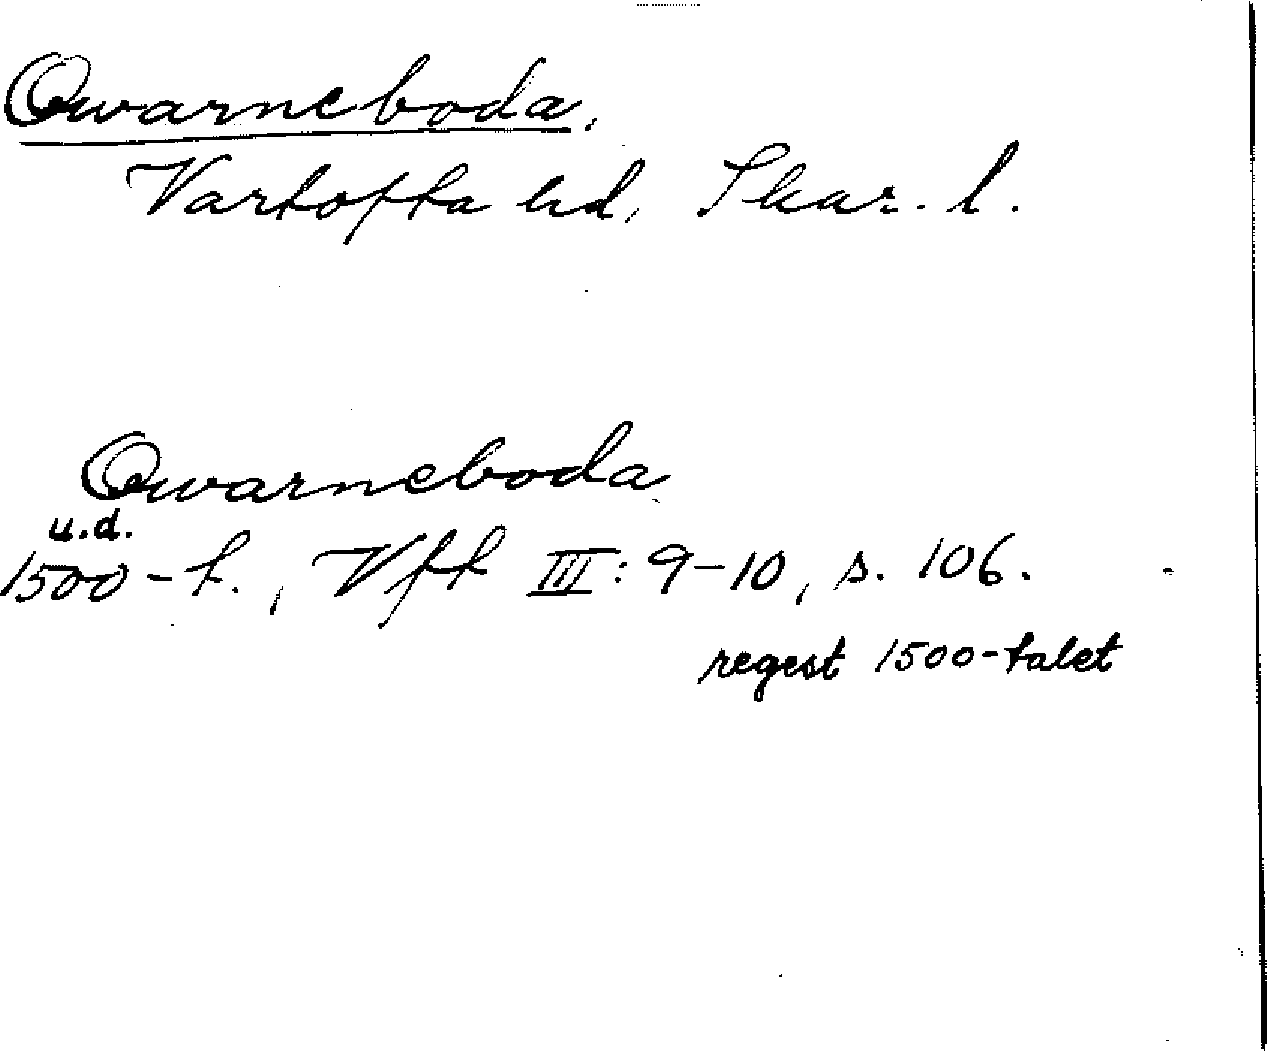 Qwarneboda.
Vartofta hd, Skar. l.
Qwarneboda
u.d.
1500-t., Vft III: 9-10, s. 106.
regest 1500-talet